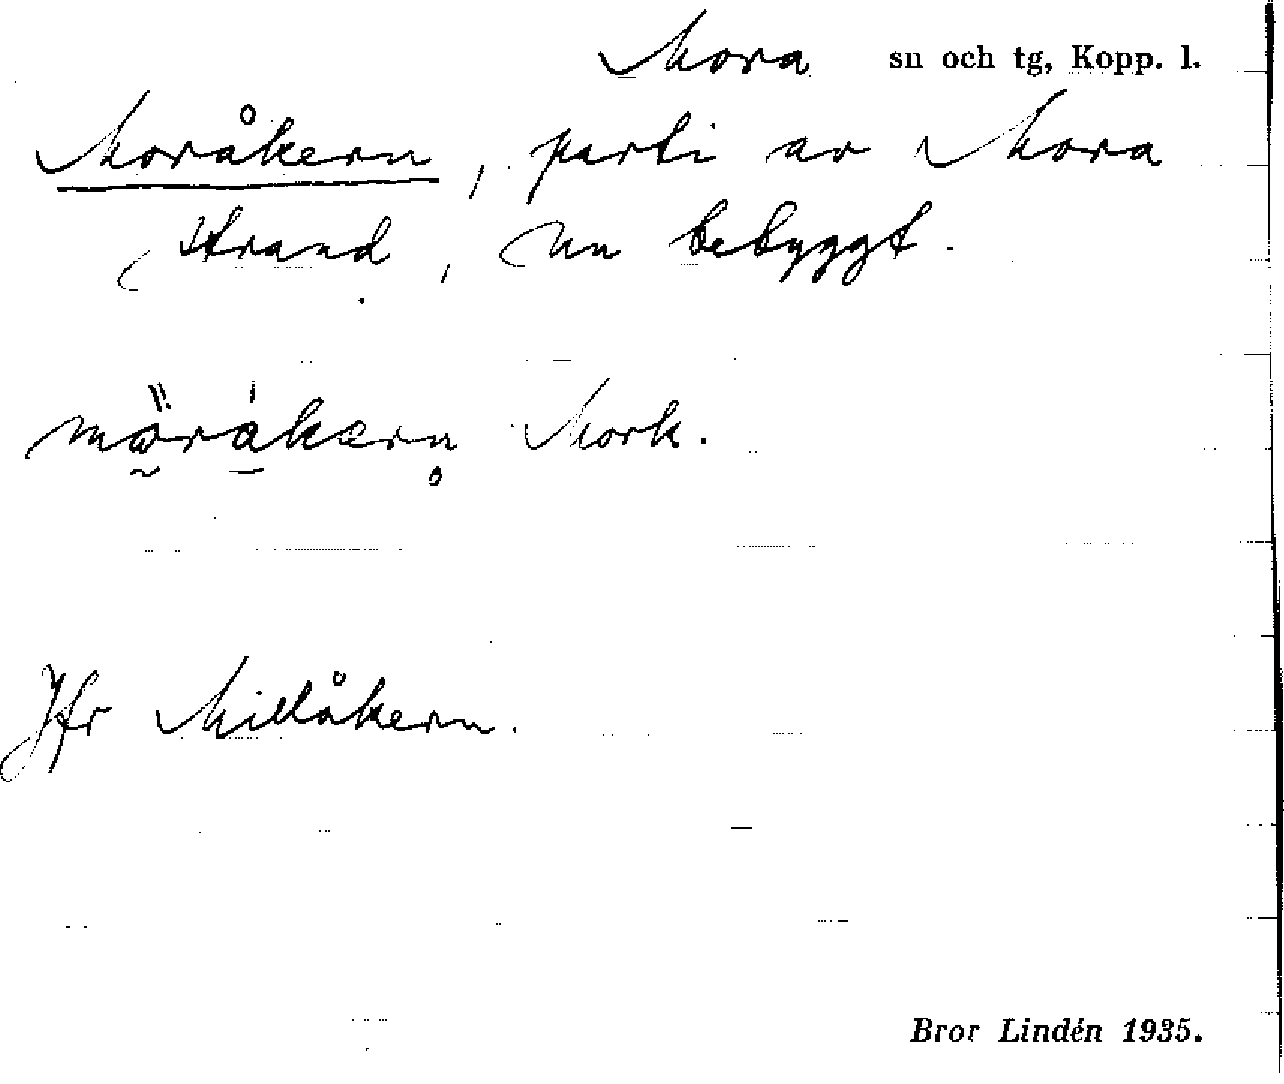 Mora sn och tg, Kopp. l.
Moråkern, parti av Mora
Strand, nu bebyggt.
Mork.
Jfr Millåkern.
Bror Lindén 1935.